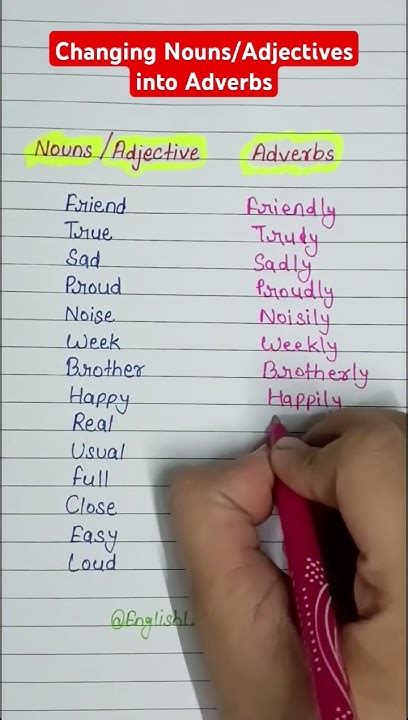 Changing Nouns/Adjectives
into Adverbs
Nouns / Adjective Adverbs
Friend Friendly
True Truly
Sad Sadly
Proud Proudly
Noise Noisily
Week Weekly
Brother Brotherly
Happy Happily
Real
Usual
Full
Close
Easy
Loud
@EnglishL